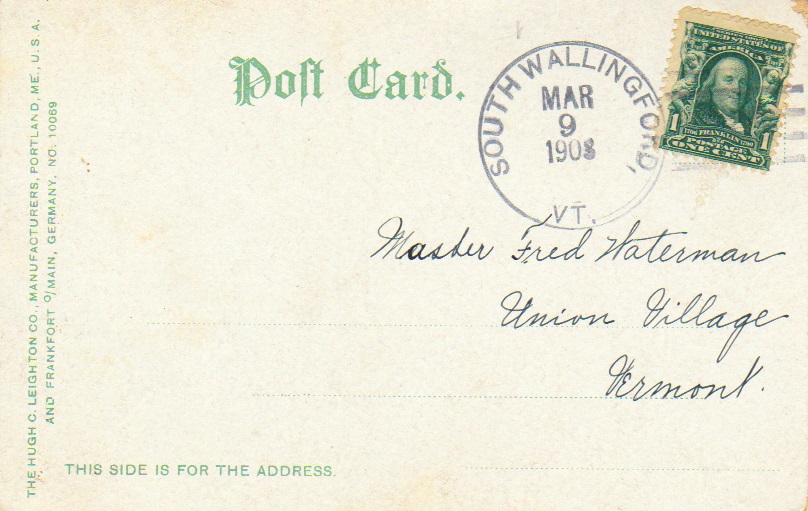 THE HUGH C. LEIGHTON CO., MANUFACTURERS, PORTLAND, ME., U.S.A.
AND FRANKFORT o/MAIN, GERMANY. NO. 10069
Post Card.
SOUTH WALLINGFORD,
MAR
9
1908
VT.
SERIES 1902
UNITED STATES OF
AMERICA
1 1
1706 FRANKLIN 1790
POSTAGE
ONE CENT
Master Fred Waterman
Union Village
Vermont.
THIS SIDE IS FOR THE ADDRESS.